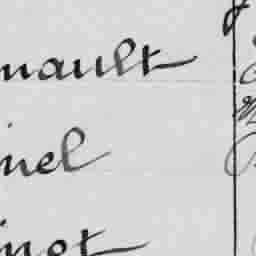 nault
nel
inot